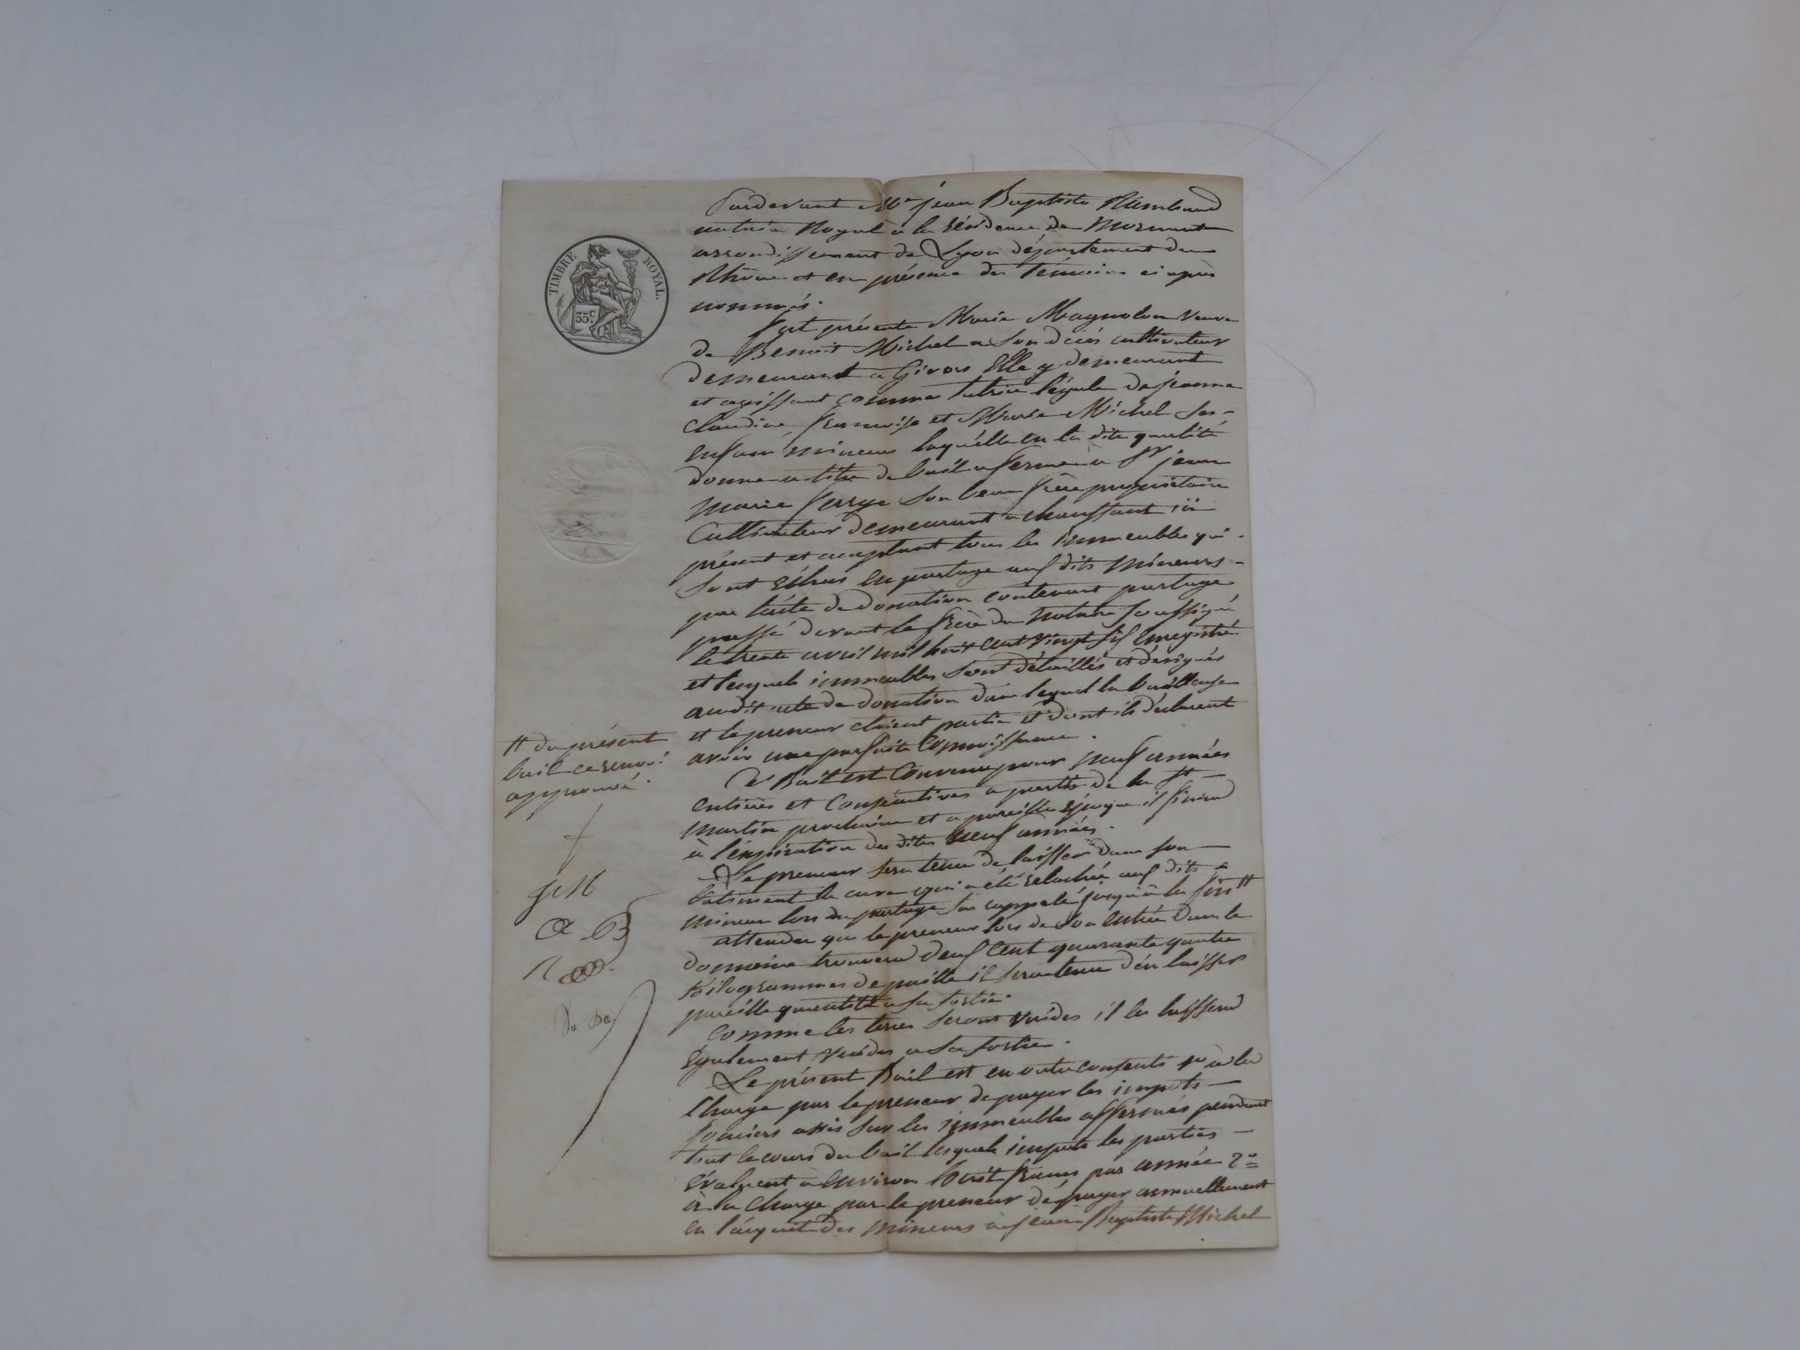 TIMBRE ROYAL.
35 c.
Pardevant Me jean Baptiste Rambaud
notaire Royal à la résidence de Mornant
arrondissement de Lyon département du
Rhône et en présence des témoins ci après
nommés.
fut présente Marie Magnolon veuve
de Benoit Michel a son décès cultivateur
demeurant a Givors Elle y demeurant
et agissant comme tutrice légale de jeanne
Claudine, françoise et Marie Michel ses
enfans mineurs laquelle en la dite qualité
donne a titre de bail a ferme à Sr jean
Marie ferrye son beau frère propriétaire
Cultivateur demeurant a chaussant ici
présent et acceptant tous les immeubles qui
sont échus en partage auxdits mineurs
par l'acte de donation contenant partage
passé devant le frère du notaire soussigné
le trente avril mil huit cent vingt six enregistré
et lesquels immeubles sont détaillés et désignés
audit acte de donation dans lequel la bailleuse
et le preneur étaient partie et dont ils déclarent
avoir une parfaite connoissance.
Ce Bail est Convenu pour neuf années
entières et Consécutives a partir de la St
Martin prochaine et a pareille époque il finira
à l'expiration des dites neuf années.
Le preneur sera tenu de laisser dans son
bâtiment la cuve qui a été relachée aux dits
mineurs lors du partage sus rappelé jusqu'à la fin #
attendu que le preneur lors de son entrée dans le
domaine trouvera deux cent quarante quatre
Kilogrammes de paille il sera tenu d'en laisser
pareille quantité a sa sortie.
Comme les terres seront vuides il les laissera
également vuides a sa sortie.
Le présent Bail est en outre consenti 1o à la
Charge par le preneur de payer les impots
fonciers assis sur les immeubles affermés pendant
tout le cours du bail lesquels impots les parties
évaluent a environ huit francs par année 2o
à la charge par le preneur de payer annuellement
en l'acquit des mineurs à jean Baptiste Michel
# du présent
bail ce renvoi
approuvé.